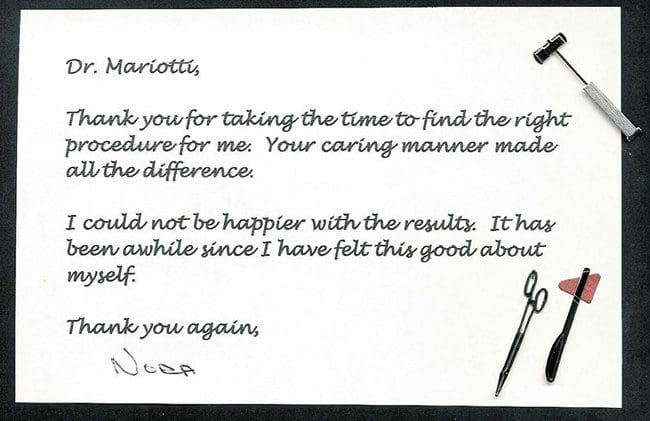 Dr. Mariotti,
Thank you for taking the time to find the right
procedure for me.  Your caring manner made
all the difference.
I could not be happier with the results.  It has
been awhile since I have felt this good about
myself.
Thank you again,
Nora